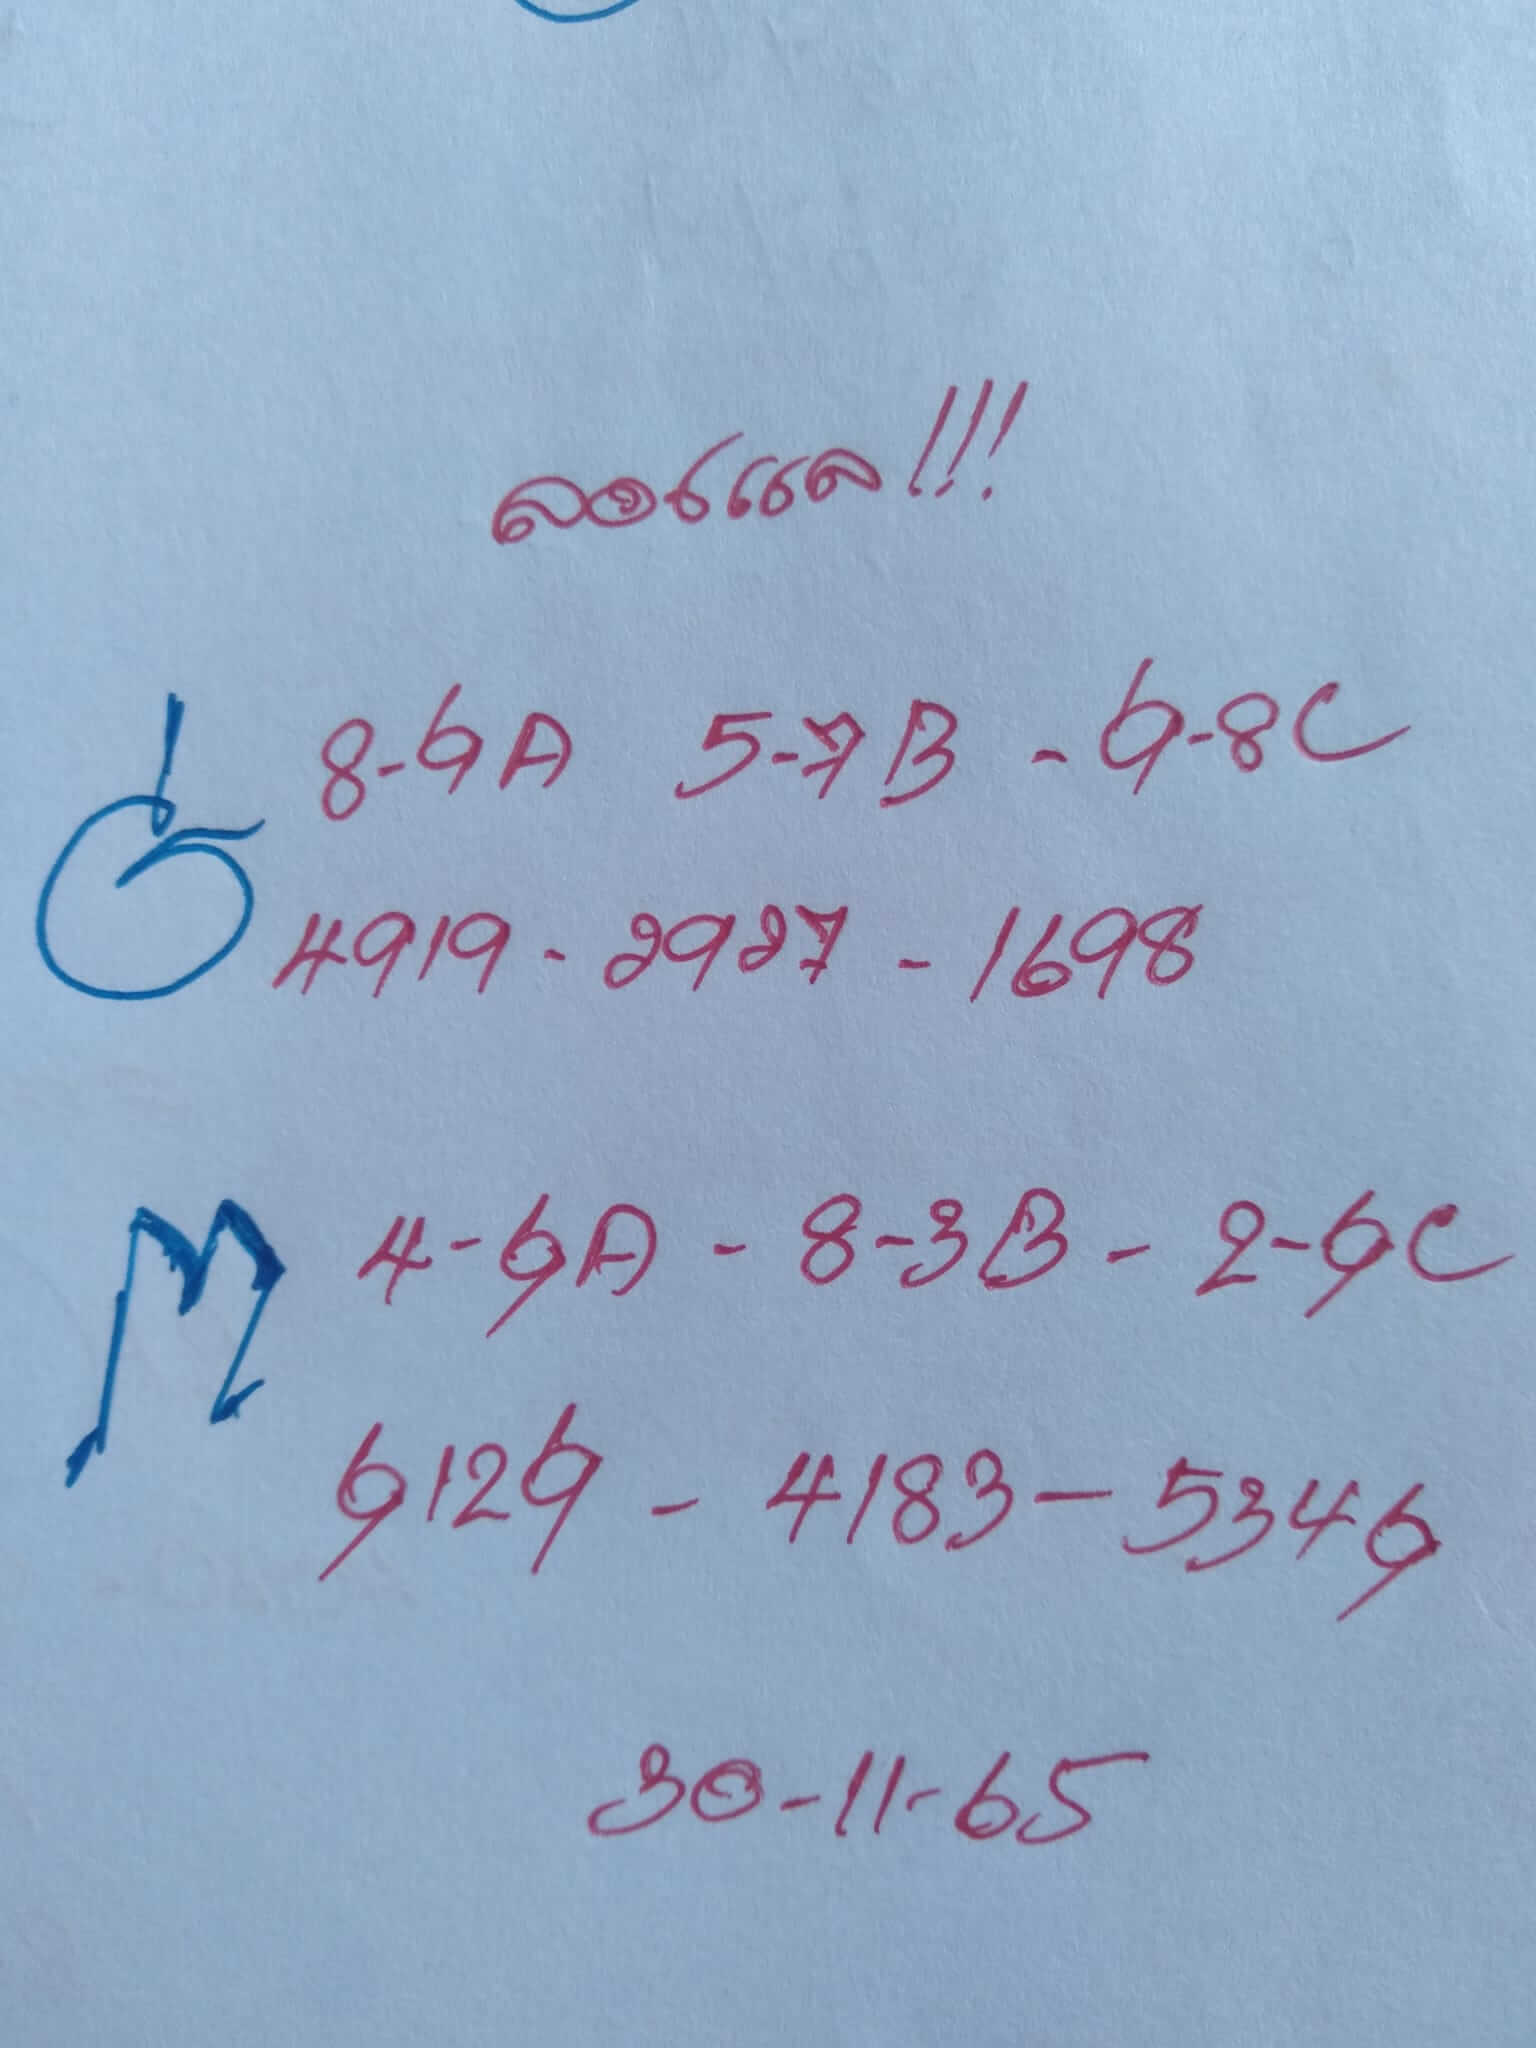 8-9A 5-7B - 9-8C
4919 - 2927 - 1698
M 4-6A - 8-3B - 2-6C
6129 - 4183 - 5346
30-11-65